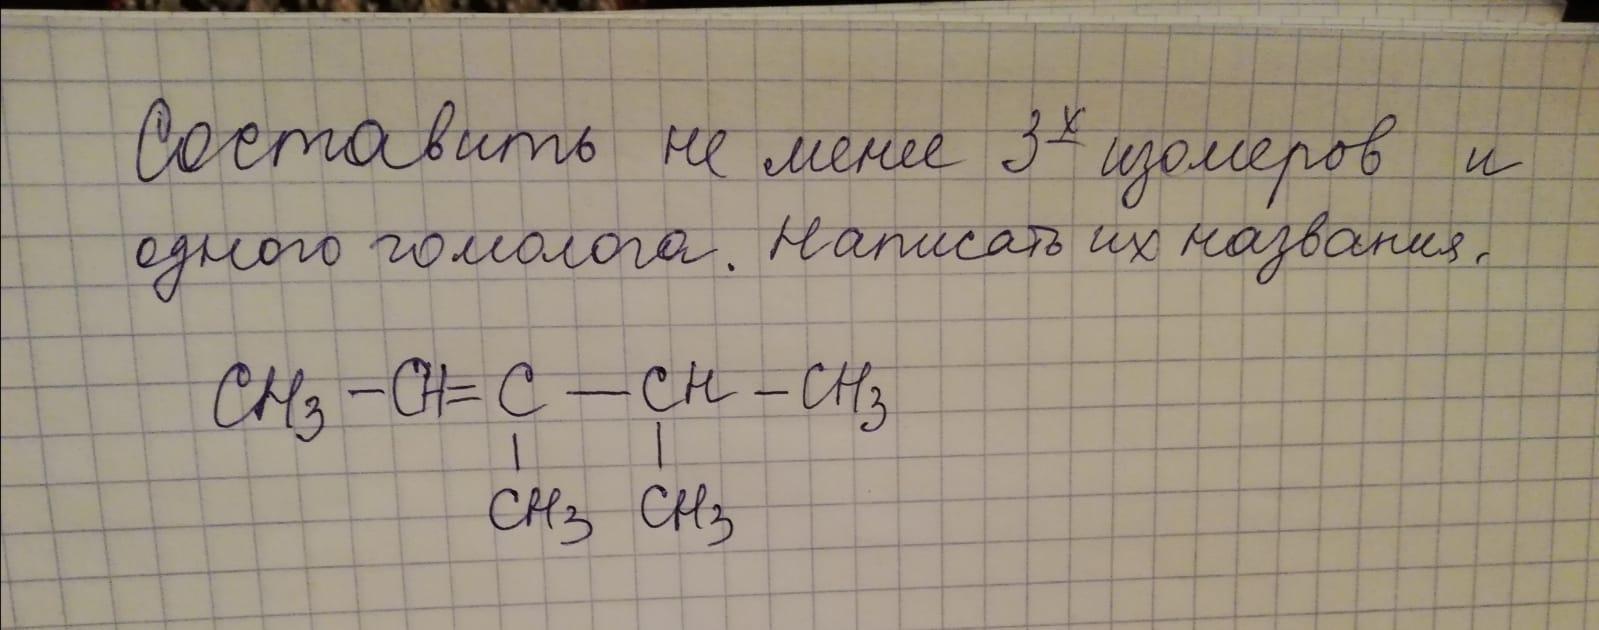 Составить не менее 3х изомеров и
одного гомолога. Написать их названия.
CH3 – CH = C — CH – CH3
| |
CH3 CH3